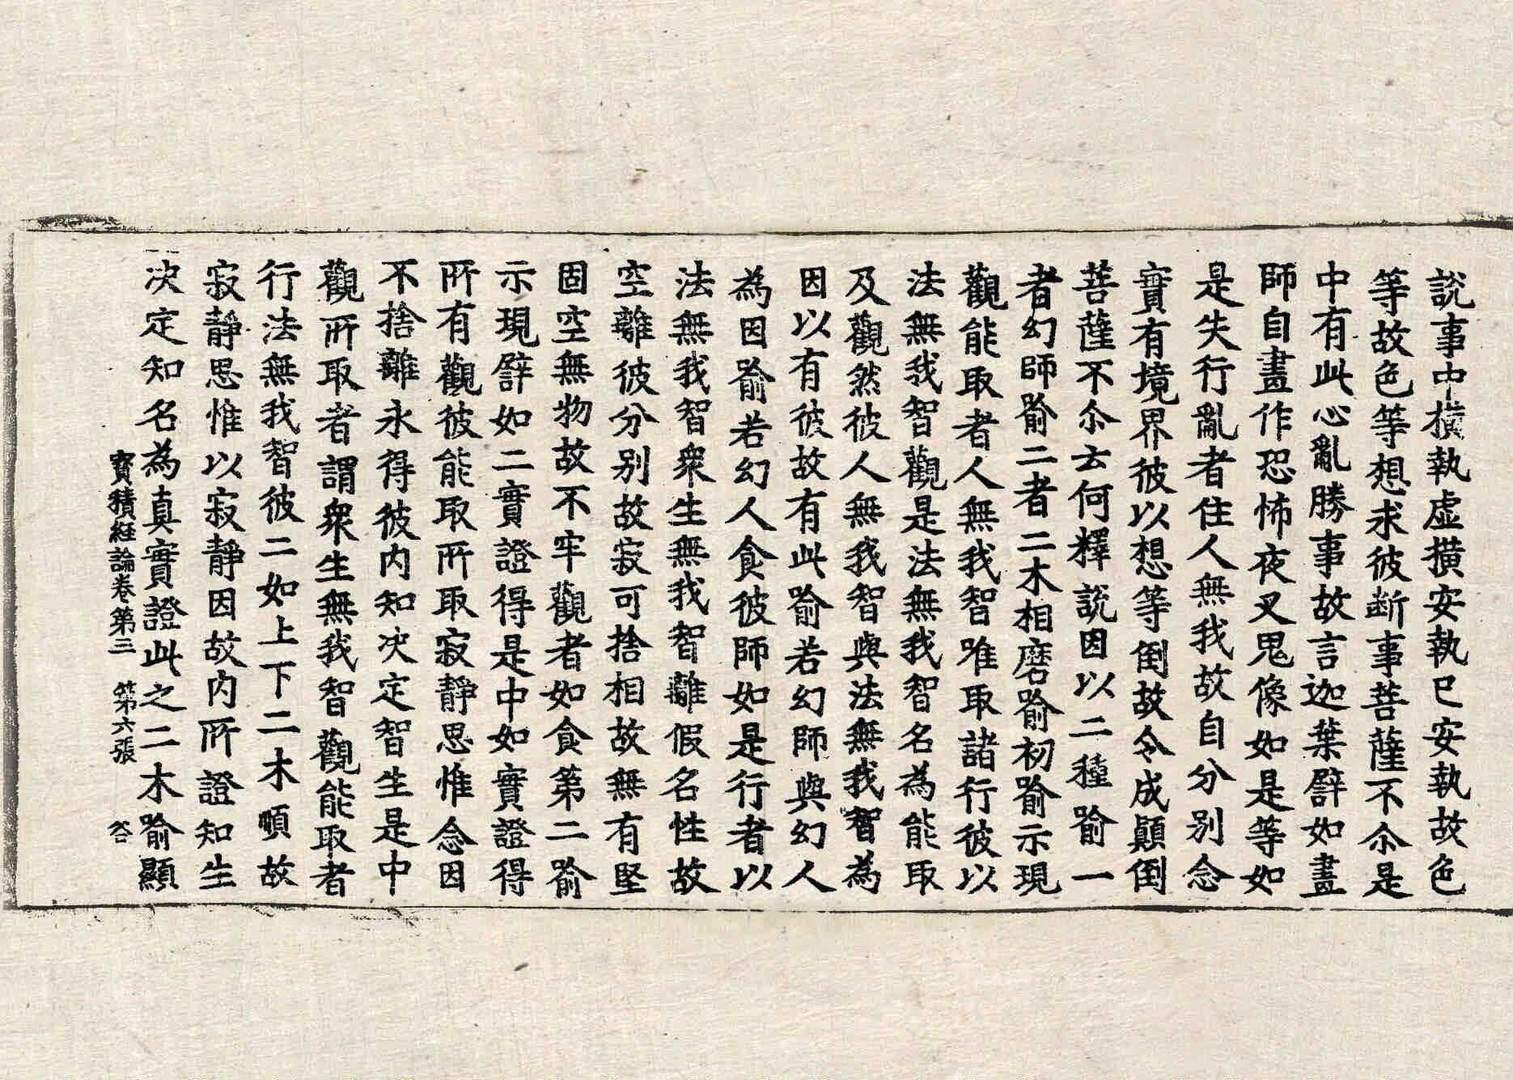 說事中橫執虛橫安執已安執故色
等故色等想求彼斷事菩薩不尒是
中有此心亂勝事故言迦葉譬如畫
師自畫作恐怖夜叉鬼像如是等如
是失行亂者住人無我故自分別念
實有境界彼以想等倒故令成顛倒
菩薩不尒云何釋說因以二種喻一
者幻師喻二者二木相磨喻初喻示現
觀能取者人無我智唯取諸行彼以
法無我智觀是法無我智名為能取
及觀然彼人無我智與法無我智為
因以有彼故有此喻若幻師與幻人
為因喻若幻人食彼師如是行者以
法無我智衆生無我智離假名性故
空離彼分別故寂可捨相故無有堅
固空無物故不牢觀者如食第二喻
示現譬如二實證得是中如實證得
所有觀彼能取所取寂靜思惟念因
不捨離永得彼内知决定智生是中
觀所取者謂衆生無我智觀能取者
行法無我智彼二如上下二木順故
寂靜思惟以寂靜因故内所證知生
决定知名為真實證此之二木喻顯
寶積經論卷第三 第六張 荅